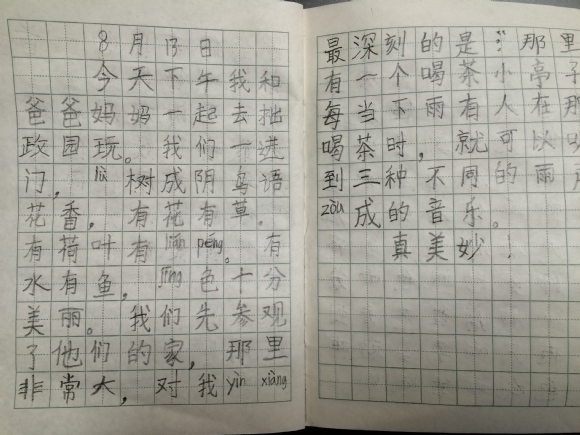 8月13日
今天下午我和
爸爸妈妈一起去拙
政园玩。我们一进
门,lǜ树成阴鸟语
花香,有花有草,
有荷叶有lián péng。有
水有鱼,jǐng色十分
美丽。我们先参观
了他们的家,那里
非常大,对我yìn xiàng
最深刻的是:那里
有一个喝茶小亭子
每当下雨有人在那
喝茶时,就可以
到三种不同的雨
zòu成的音乐。
真美妙!